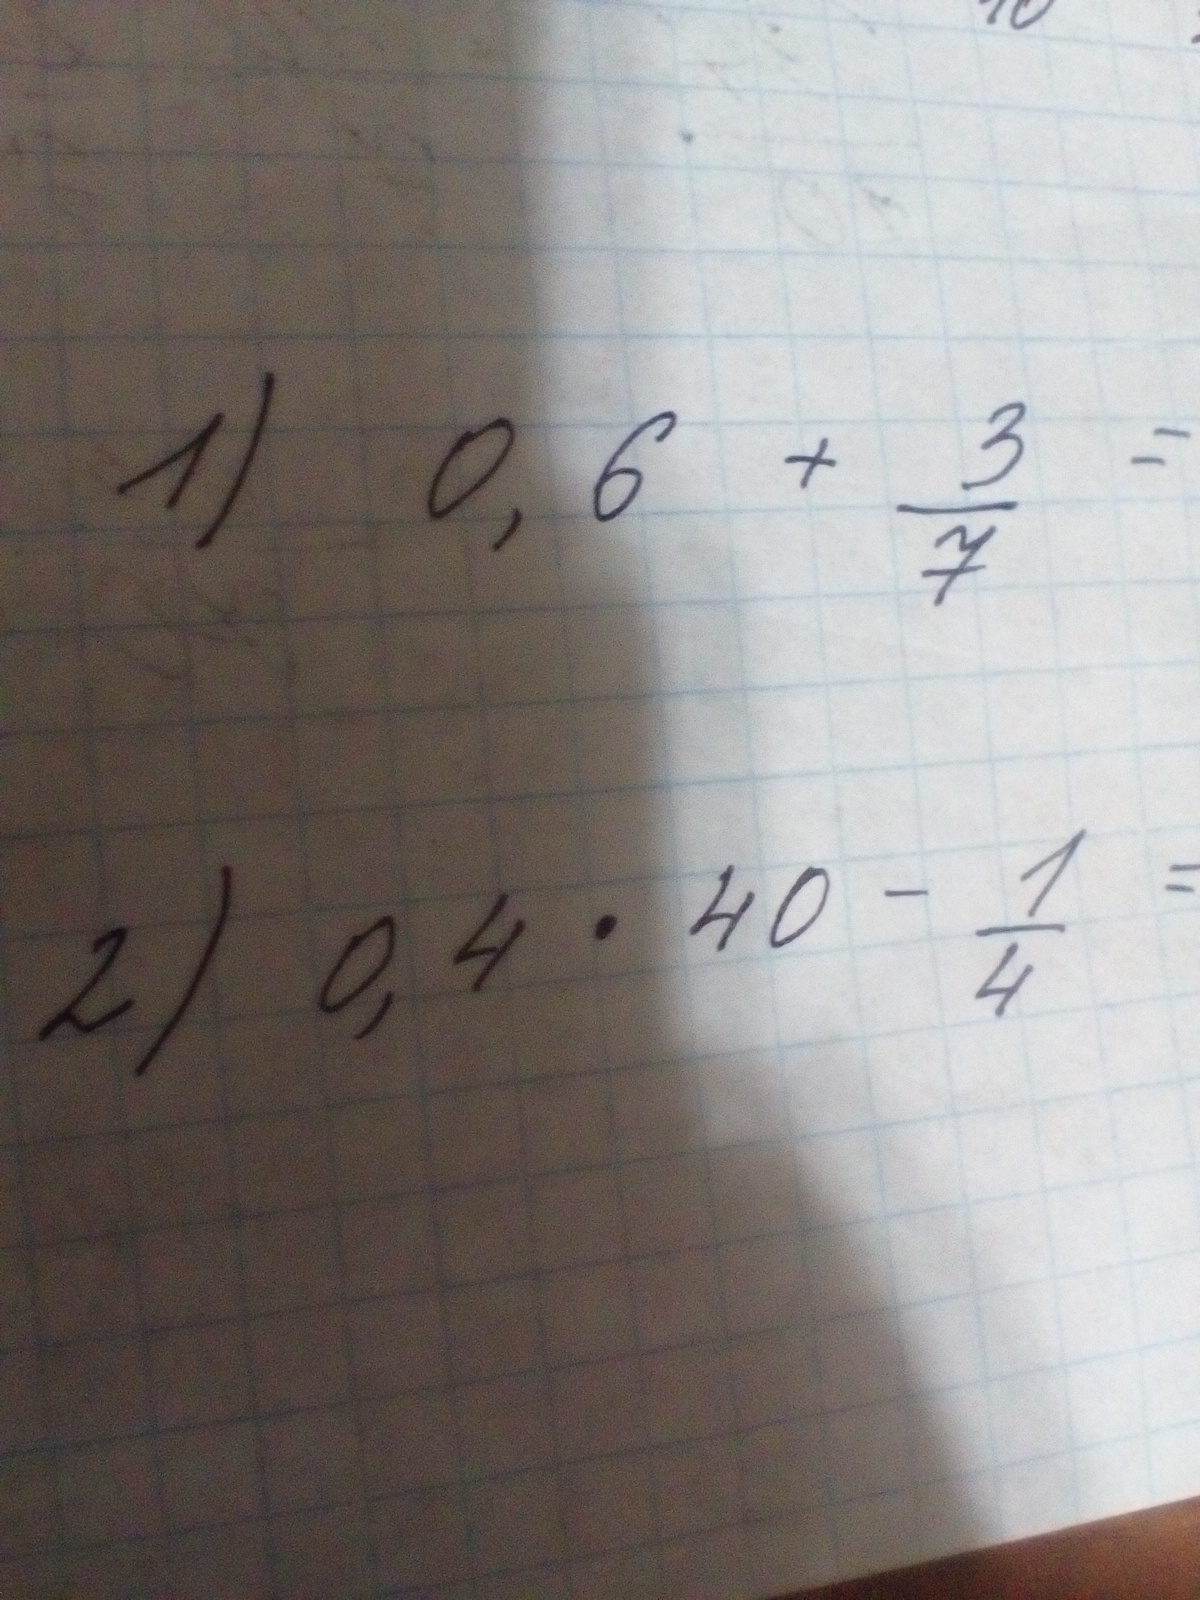 10
1) 0,6 + 3/7 =
2) 0,4 · 40 - 1/4 =